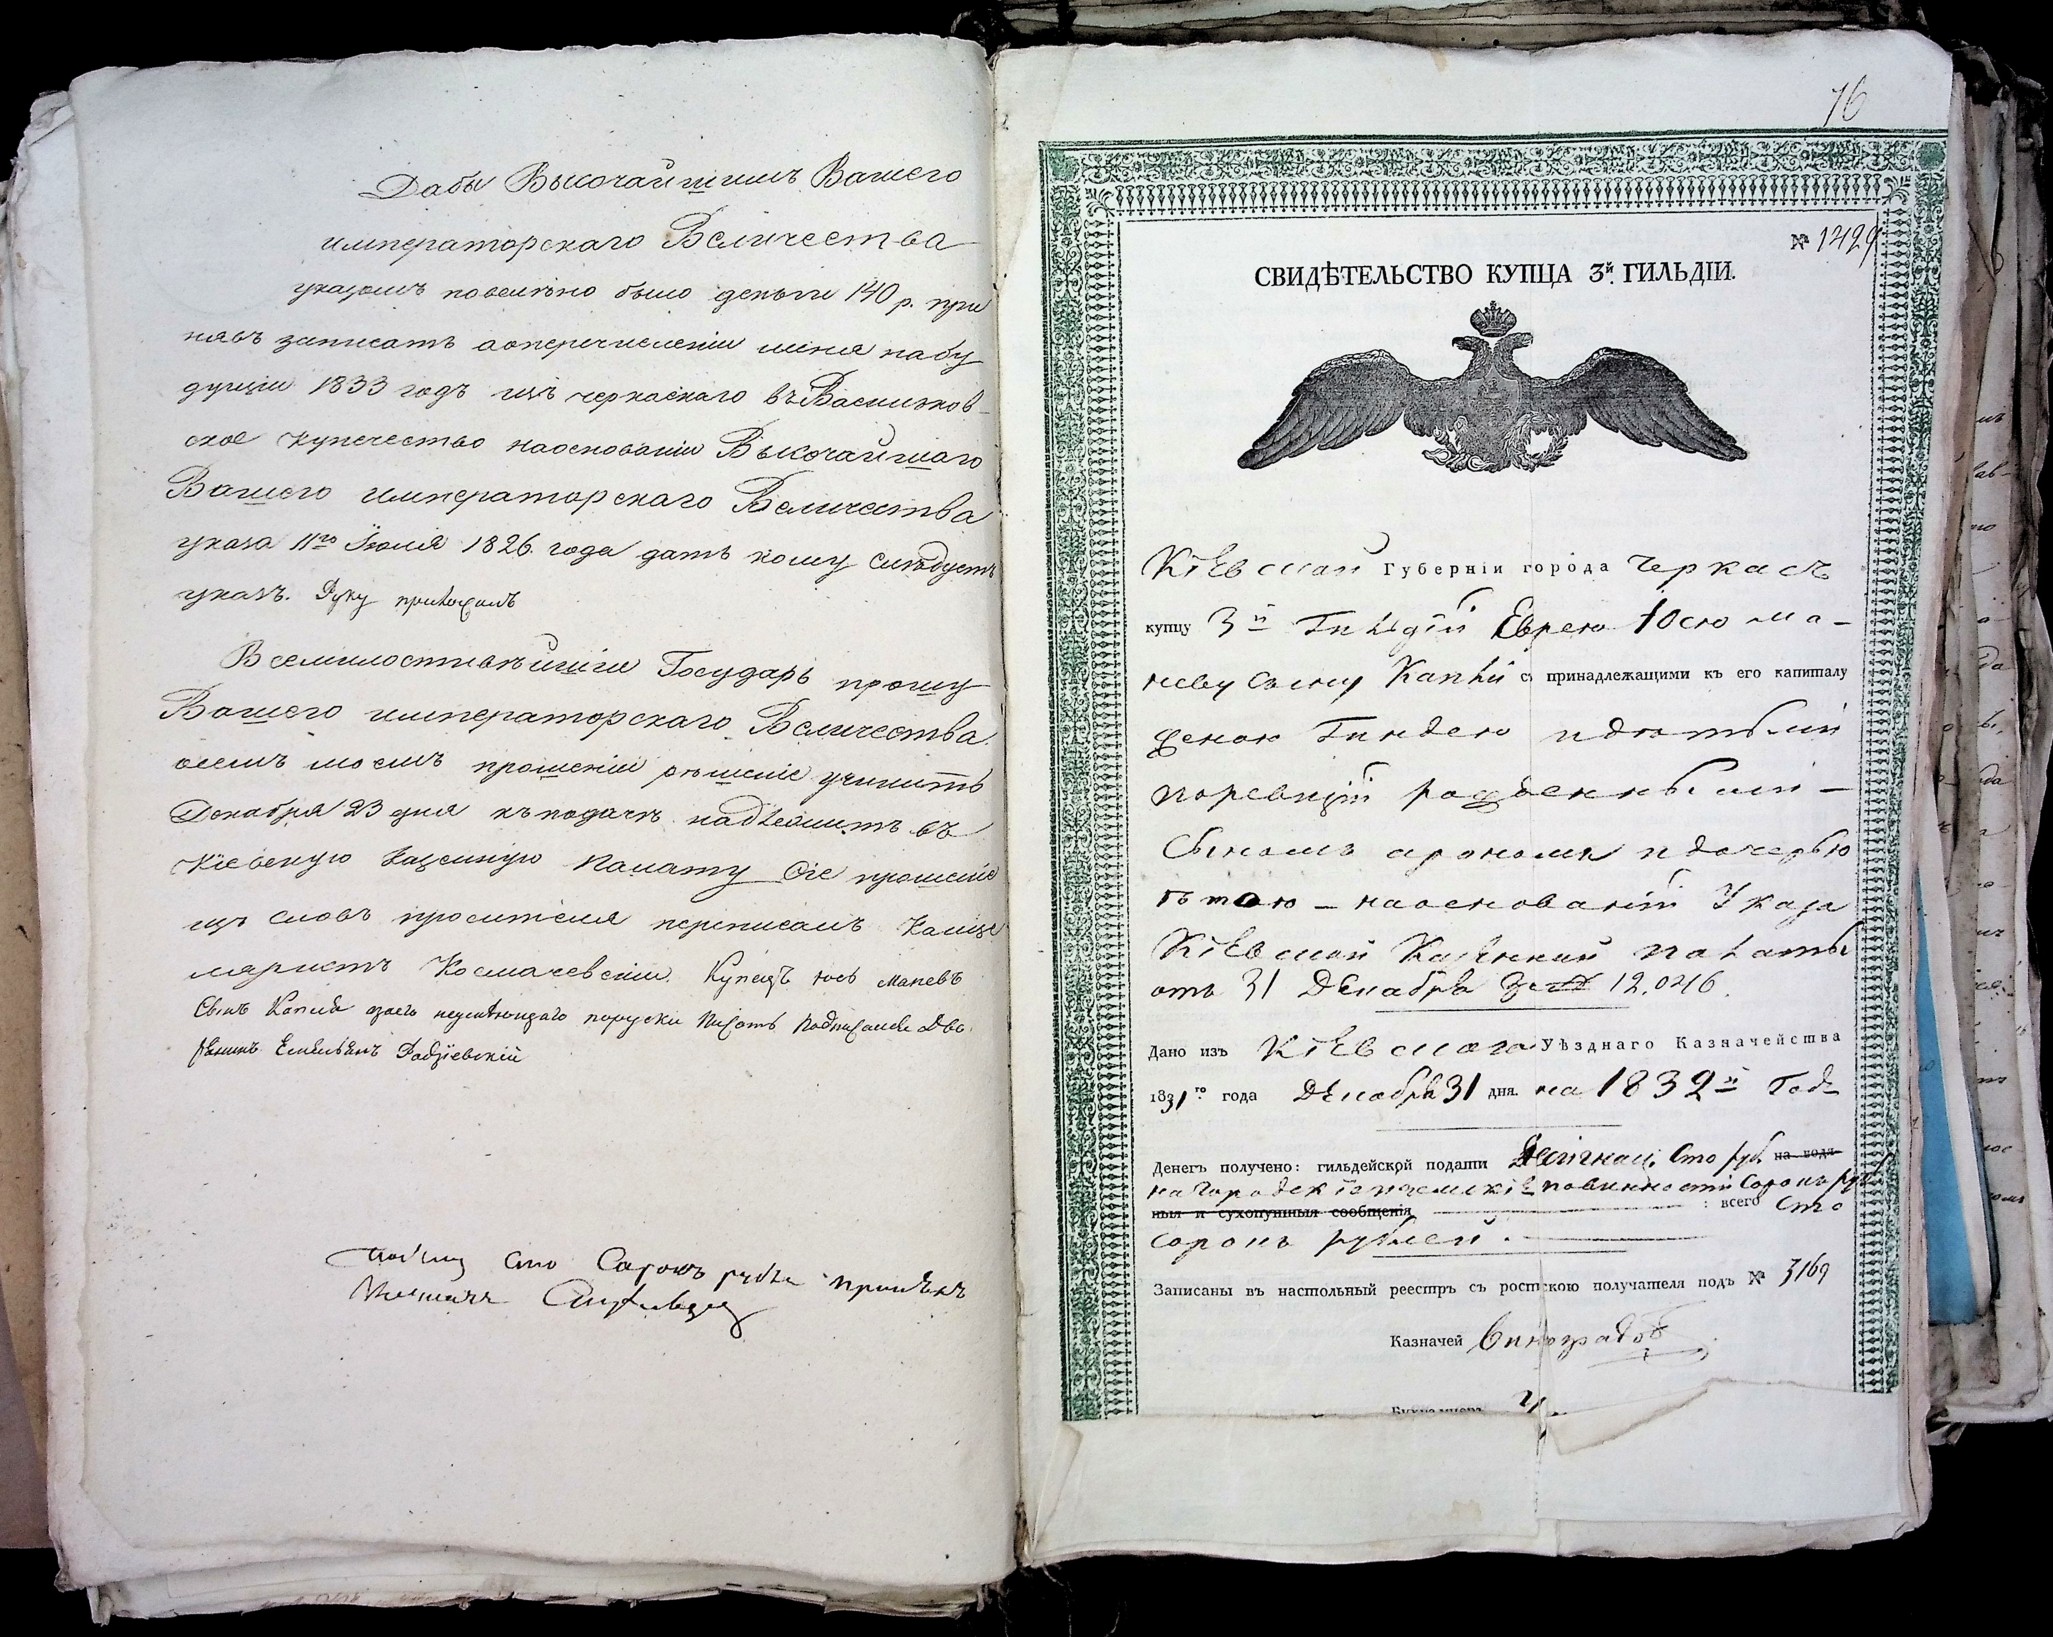 Дабы Высочайшимъ Вашего
императорскаго Величества
указомъ повелѣно было деньги 140 р. при
нявъ записать аоперечисленіи меня набу
дущіи 1833 годъ изъ черкаскаго въ Васильков-
ское купечество наоснованіи Высочайшаго
Вашего императорскаго Величества
указа 11го Іюля 1826. года дать кому слѣдуетъ
указъ. Руку приложилъ
Всемилостивѣишіи Государь прошу
Вашего императорскаго Величества
осемъ моемъ прошеніи рѣшеніе учинить
Декабря 23 дня къ подачѣ надлежитъ въ
Кіевскую Казенную Палату Сіе прошеніе
изъ словъ просителя переписалъ Канце
ляристъ Космачевскіи. Купецъ Юсь Маневъ
Сынъ Каплій азаего неумѣющаго порусски Писать Подписался Дво
рянинъ Емельянъ Радзіевскій
сто Сорокъ рубли принялъ
76
№ 1429
СВИДѢТЕЛЬСТВО КУПЦА 3й ГИЛЬДІИ.
Кіевской Губерніи города Черкасъ
купцу 3й Гильдіи Еврею Юсю Ма-
неву сыну Каплій съ принадлежащими къ его капиталу
женою Гиндею и дѣтьми
поревизіи рожденными -
Сыномъ арономъ и дочерью
- наоснованіи Указа
Кіевской Казенной палаты
отъ 31 Декабря за № 12,046.
Дано изъ Кіевскаго Уѣзднаго Казначейства
1831го года Декабря 31 дня. на 1832й Годъ
Денегъ получено: гильдейской подати Сто руб. на вод
на Городскіе и земскіе повинности Сорокъ руб
ныя и сухопутныя сообщенія : всего Сто
сорокъ рублей.
Записаны въ настольный реестръ съ роспискою получателя подъ № 3169
Казначей Виноградовъ
Бухгалтеръ